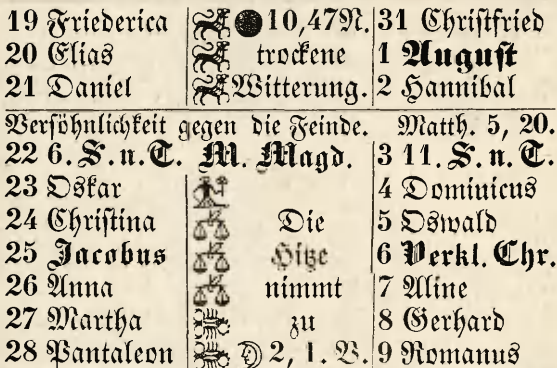 19 Friederica 10,47N. 31 Christfried
20 Elias trockene 1 August
21 Daniel Witterung. 2 Hannibal
Versöhnlichkeit gegen die Feinde. Matth. 5, 20.
22 6. S. n. T. M. Magd. 3 11. S. n. T.
23 Oskar 4 Dominicus
24 Christina Die 5 Oswald
25 Jacobus Hitze 6 Verkl. Chr.
26 Anna nimmt 7 Aline
27 Martha zu 8 Gerhard
28 Pantaleon 2, 1. V. 9 Romanus